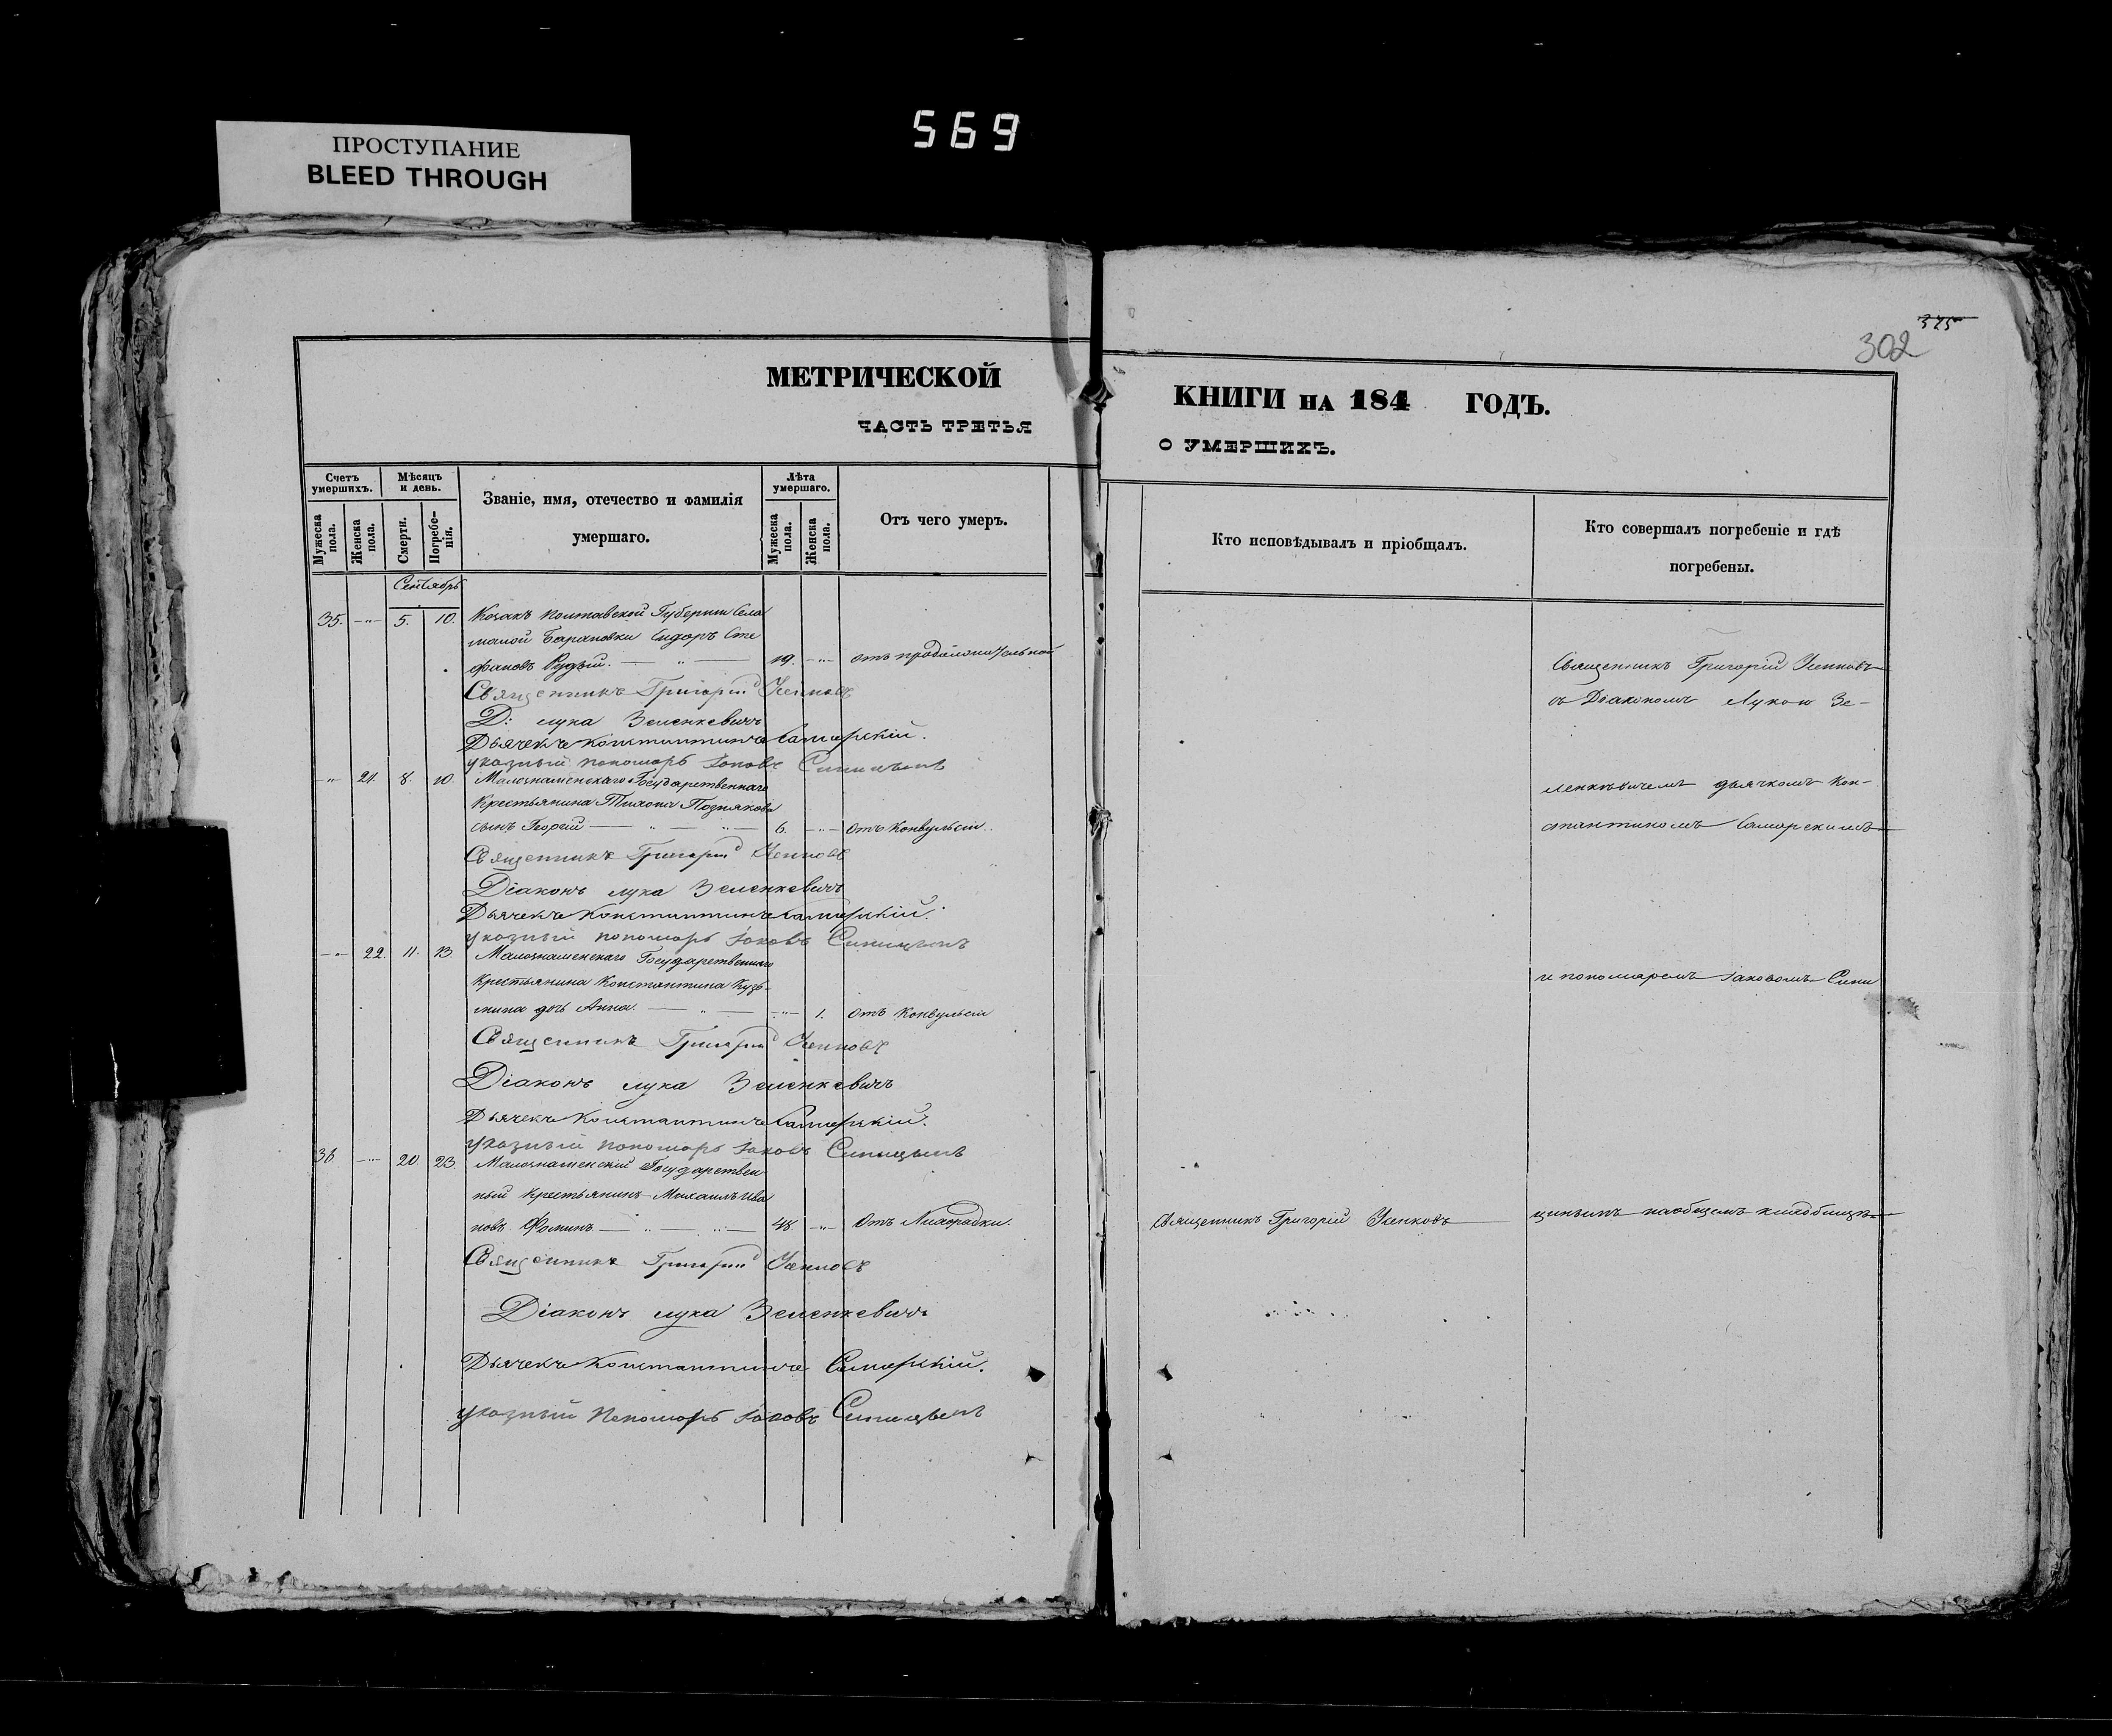 569
ПРОСТУПАНИЕ
BLEED THROUGH
375
302
МЕТРИЧЕСКОЙ
КНИГИ НА 184 ГОДЪ.
ЧАСТЬ ТРЕТЬЯ
О УМЕРШИХЪ.
Счетъ умершихъ.
Мужеска пола.
Женска пола.
Мѣсяцъ и день.
Смерти.
Погребе-нія.
Званіе, имя, отечество и фамилія
умершаго.
Лѣта умершаго.
Мужеска пола.
Женска пола.
Отъ чего умеръ.
Кто исповѣдывалъ и пріобщалъ.
Кто совершалъ погребеніе и гдѣ
погребены.
Сентябрь
35. -"- 5. 10. Козакъ Полтавской Губерніи Села
малой Барановки Сидоръ Сте
фановъ Рудый. — " — 19. -"- отъ
Священникъ Григорій Усенковъ
съ Діакономъ Лукою Зе-
Священникъ Григорій Усенковъ
Д: лука Зеленкевичъ
Дьячекъ Константинъ Самарскій.
указный пономарь Іаковъ Синицынъ
-"- 21. 8. 10. Малознаменскаго Государственнаго
Крестьянина Тихона Познякова
сынъ Георгій — " — " — 6. -"- отъ Конвульсіи.
ленкѣвичемъ дьячкомъ Кон-
стантиномъ Самарскимъ
Священникъ Григорій Усенковъ
Діаконъ лука Зеленкевичъ
Дьячекъ Константинъ Самарскій.
указный пономарь Іаковъ Синицынъ
-"- 22. 11. 13. Малознаменскаго Государственнаго
Крестьянина Константина Кузь-
мина дочь Анна. — " — -"- 1. отъ Конвульсіи
и пономаремъ Іаковомъ Сини
Священникъ Григорій Усенковъ
Діаконъ лука Зеленкевичъ
Дьячекъ Константинъ Самарскій.
указный пономарь Іаковъ Синицынъ
36 -"- 20. 23. Малознаменскій Государствен
ный Крестьянинъ Михаилъ Ива
новъ Фоминъ — " — " — 48. -"- Отъ Лихорадки.
Священникъ Григорій Усенковъ
цинымъ наобщемъ кладбищѣ
Священникъ Григорій Усенковъ
Діаконъ лука Зеленкевичъ
Дьячекъ Константинъ Самарскій.
указный Пономарь Іаковъ Синицынъ